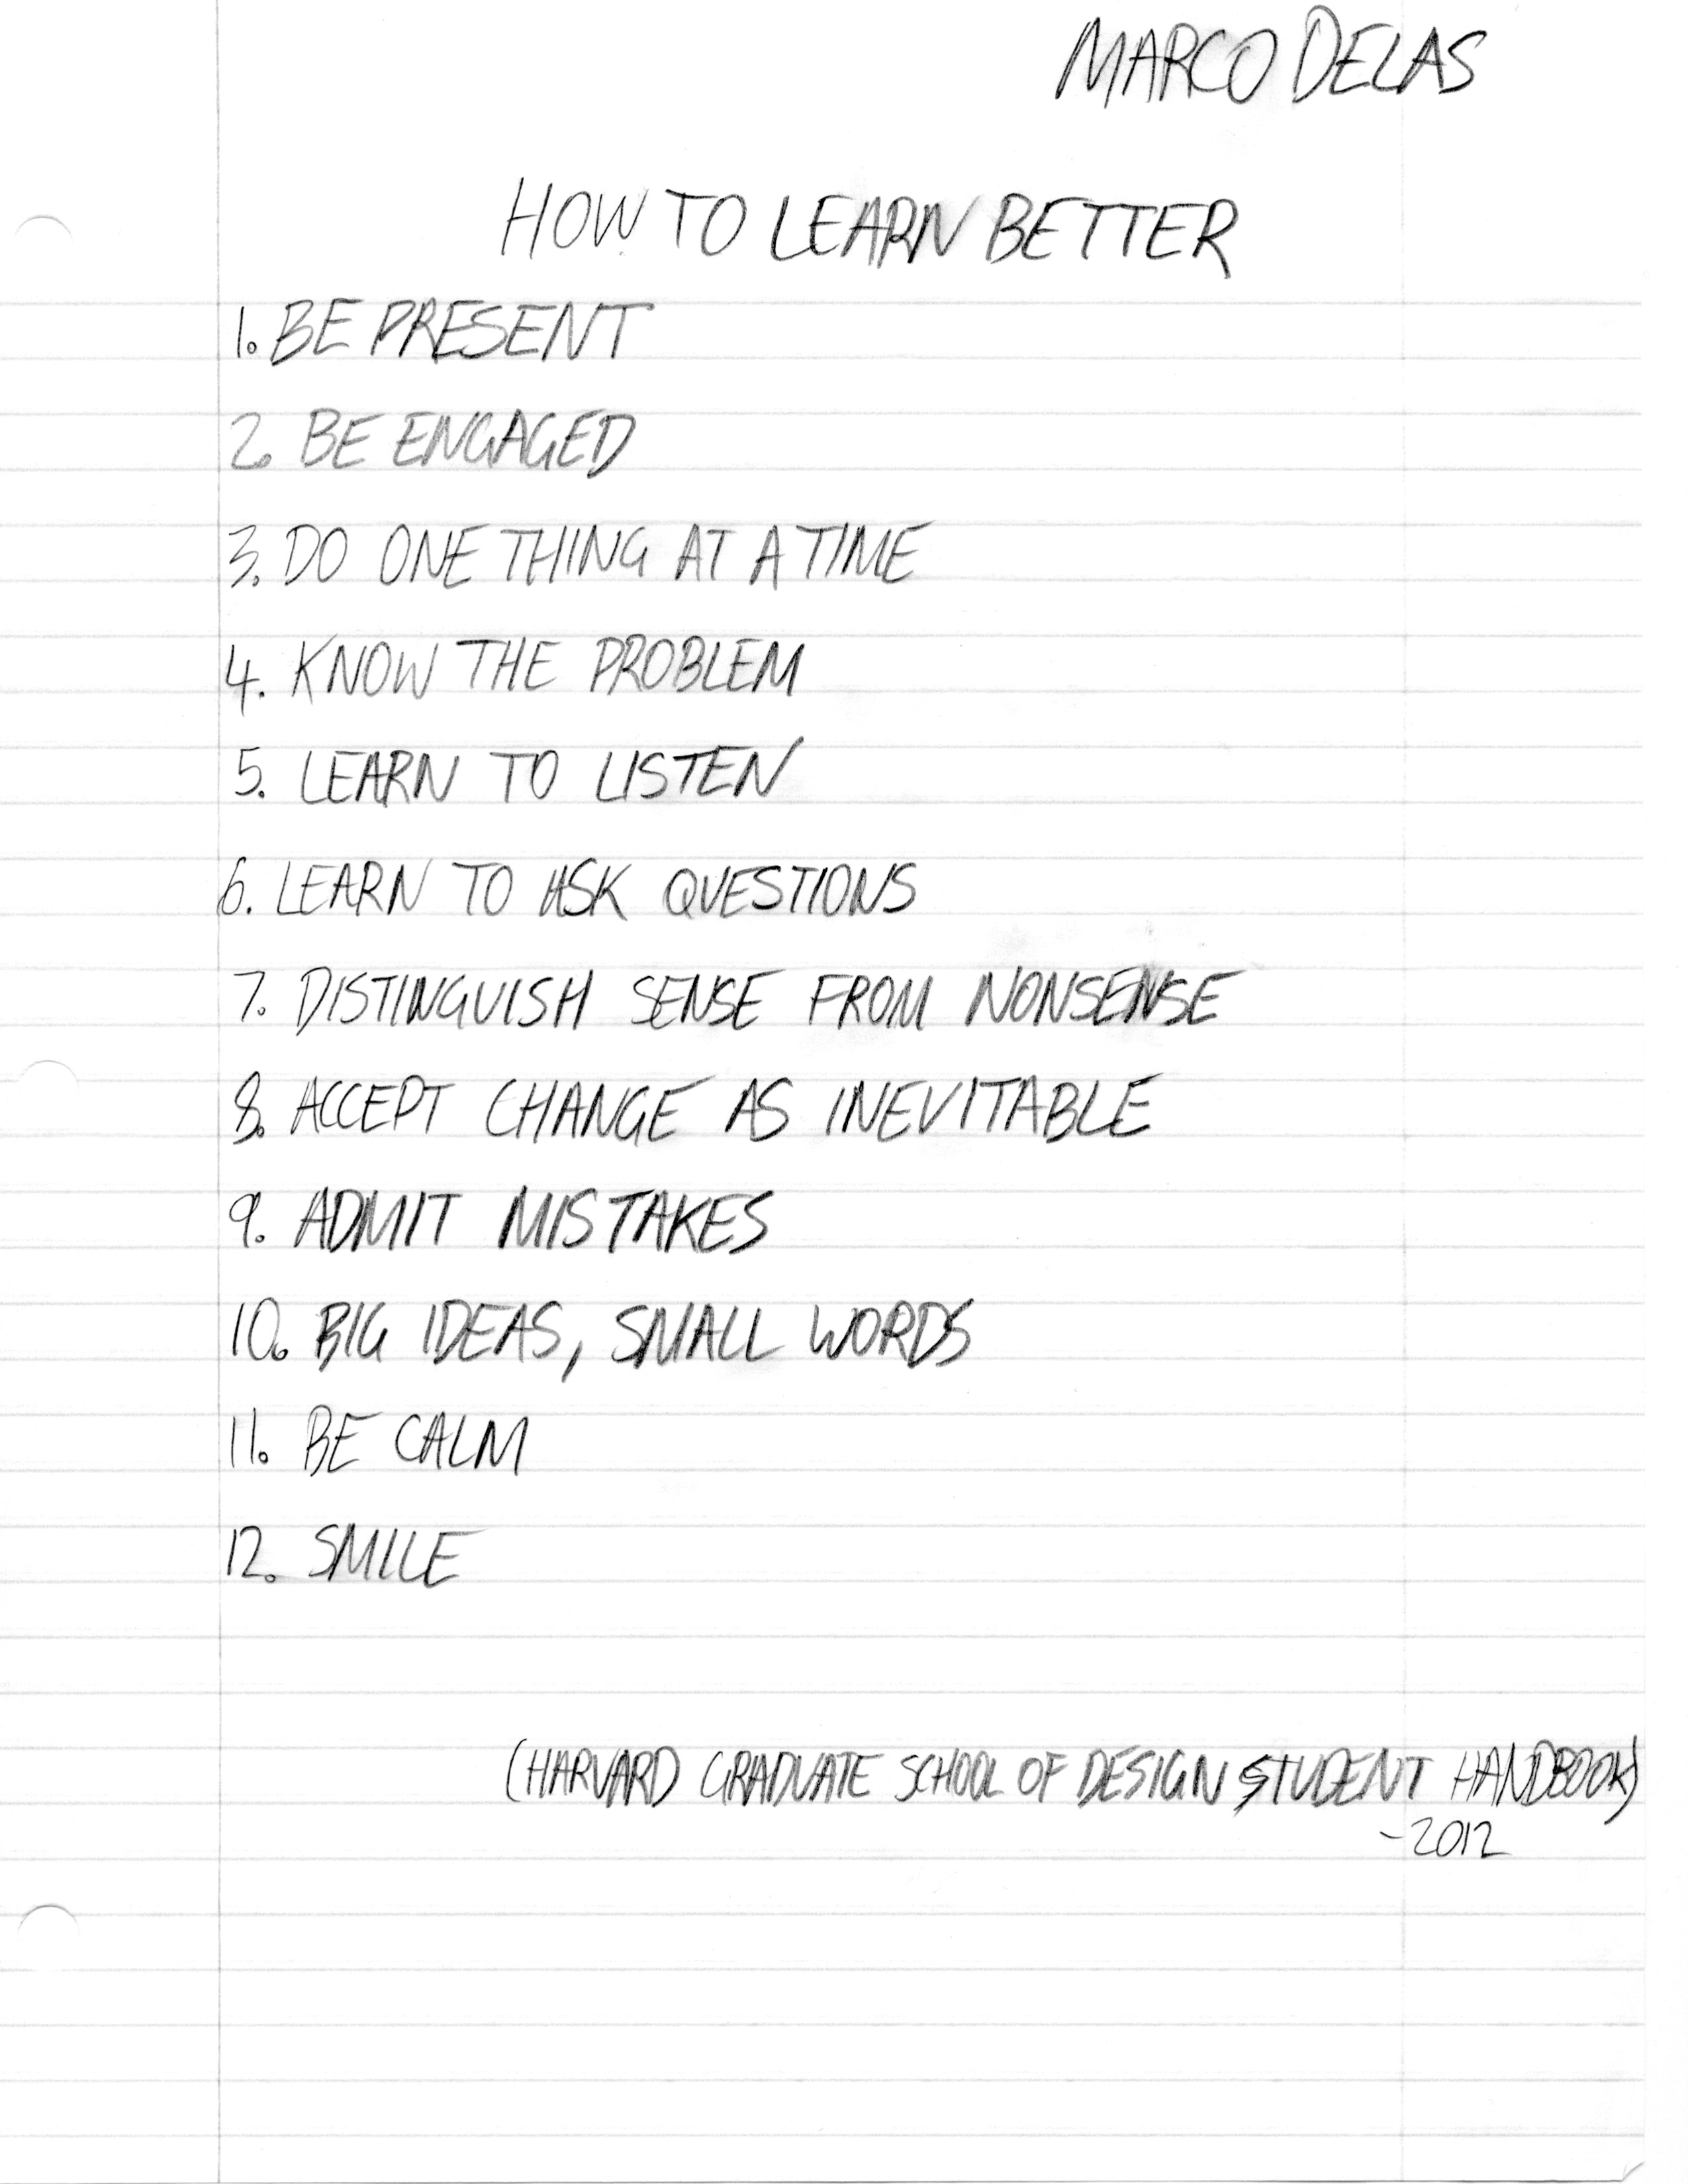 MARCO DELAS
HOW TO LEARN BETTER
1. BE PRESENT
2. BE ENGAGED
3. DO ONE THING AT A TIME
4. KNOW THE PROBLEM
5. LEARN TO LISTEN
6. LEARN TO ASK QUESTIONS
7. DISTINGUISH SENSE FROM NONSENSE
8. ACCEPT CHANGE AS INEVITABLE
9. ADMIT MISTAKES
10. BIG IDEAS, SMALL WORDS
11. BE CALM
12. SMILE
(HARVARD GRADUATE SCHOOL OF DESIGN STUDENT HANDBOOK)
-2012